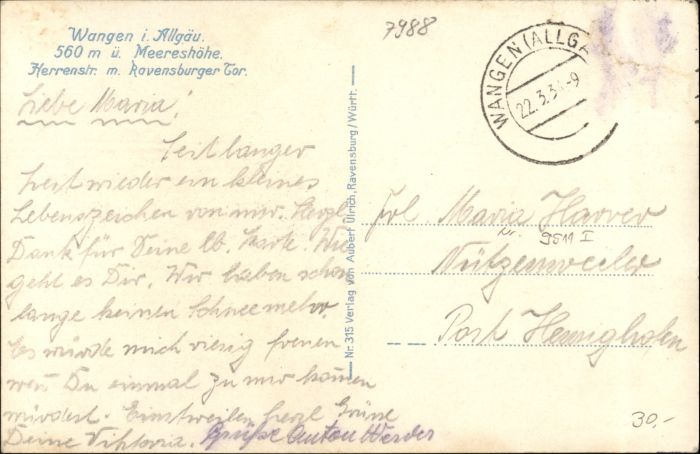 Wangen i. Allgäu.
560 m ü. Meereshöhe.
Herrenstr. m. Ravensburger Tor.
7988
WANGEN (ALLGÄ
22.3.34-9
Liebe Maria!
Seit langer
Zeit wieder ein kleines
Lebenszeichen von mir. Herzl.
Dank für Deine lb. Karte. Wie
geht es Dir. Wir haben schon
lange keinen Schnee mehr.
Es würde mich riesig freuen
wen Du einmal zu mir kommen
würdest. Einstweilen herzl Grüsse
Deine Viktoria. Grüße Anton Werder
Nr. 315 Verlag von Aubert Ulrich, Ravensburg/Württ.
Frl. Maria Harrer
Nr. 9511 I
Nützenweeler
Post Hemigkofen
30,-